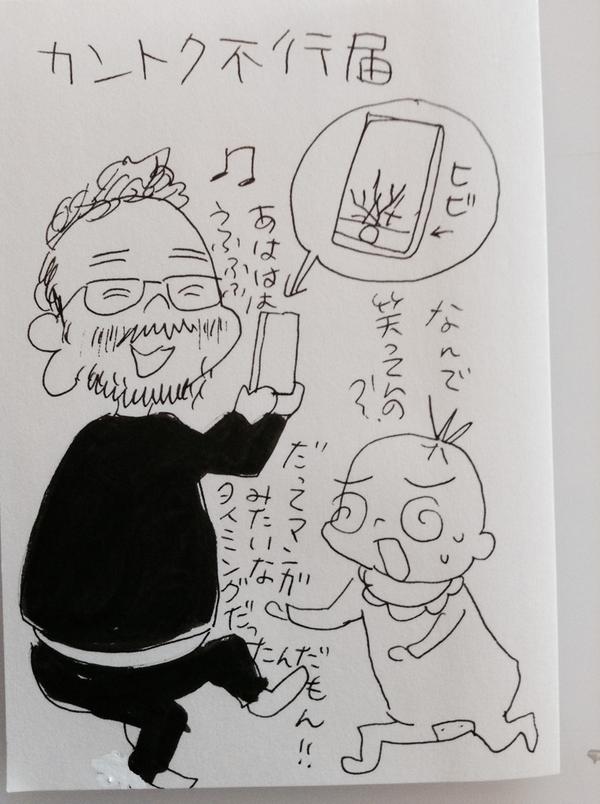 カントク不行届
ヒビ
←
♪
あははは
うふふふ
なんで
笑ってんの
!?
だってマンガ
みたいな
タイミングだったんだもん!!